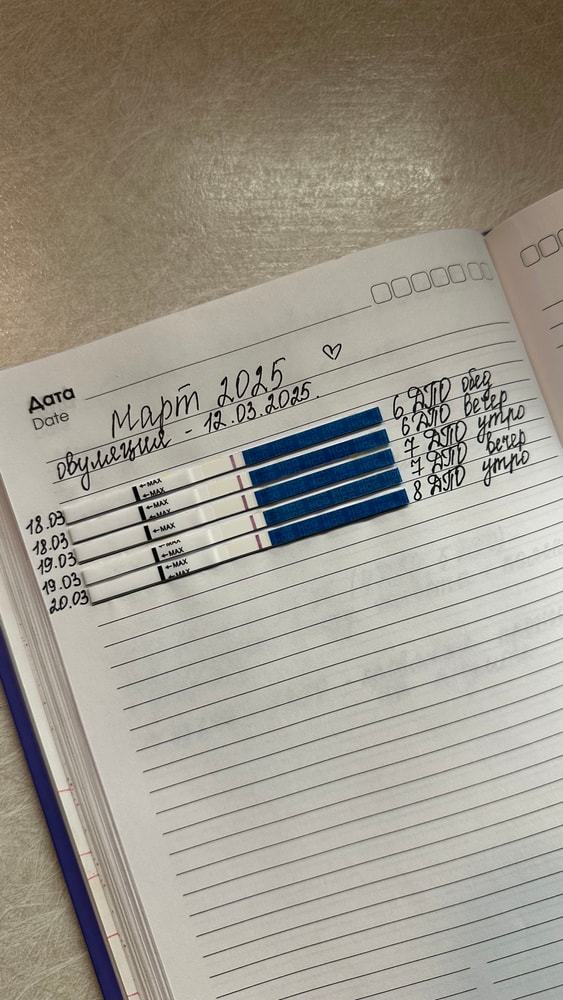 Дата
Date
Март 2025
овуляция - 12.03.2025.
18.03 ←MAX 6 ДПО обед
18.03 ←MAX 6 ДПО вечер
19.03 ←MAX 7 ДПО утро
19.03 ←MAX 7 ДПО вечер
20.03 ←MAX 8 ДПО утро